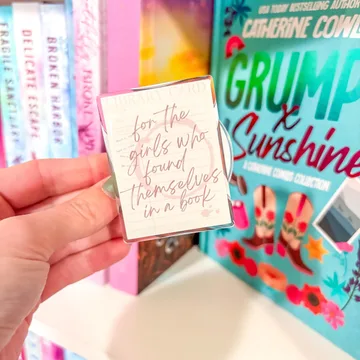 FRAGILE SANCTUARY
DELICATE ESCAPE
BROKEN HARBOR
for the
girls who
found
themselves
in a book
USA TODAY BESTSELLING AUTHOR
CATHERINE COWL
GRUMP
x
Sunshine
A CATHERINE COWLES COLLECTION